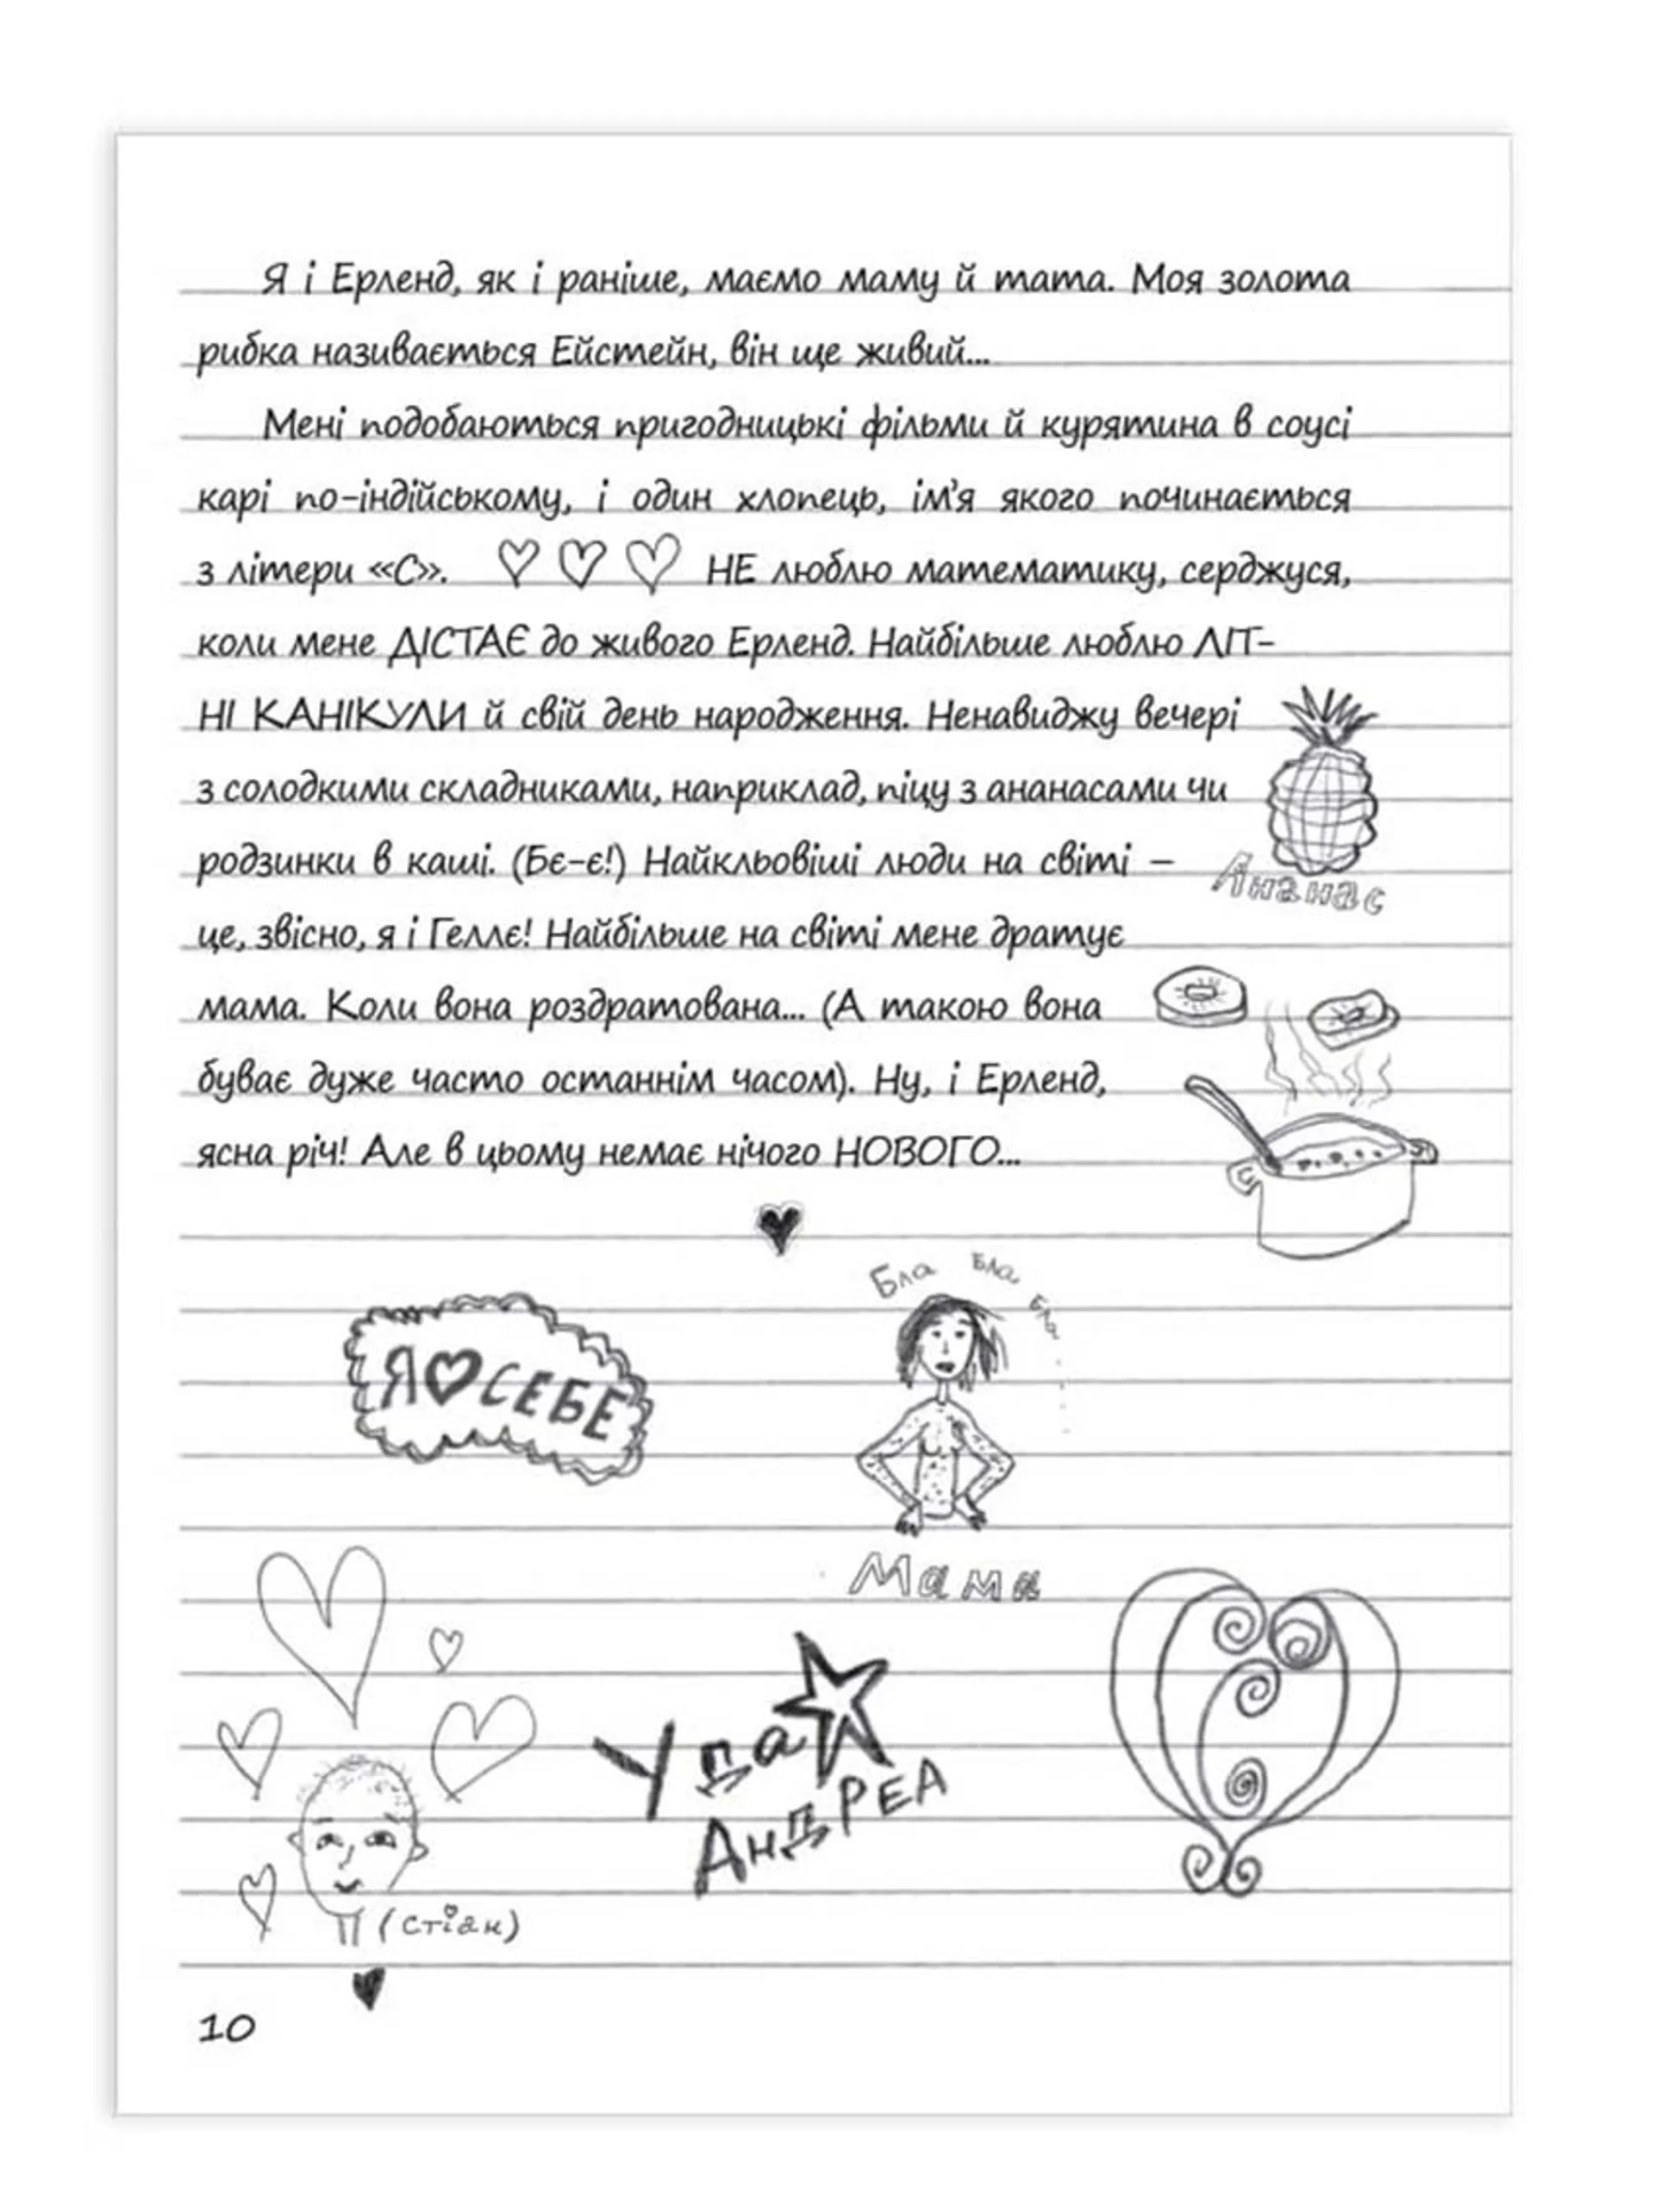 Я і Ерленд, як і раніше, маємо маму й тата. Моя золота
рибка називається Ейстейн, він ще живий...
Мені подобаються пригодницькі фільми й курятина в соусі
карі по-індійському, і один хлопець, ім'я якого починається
з літери «С». ♡ ♡ ♡ НЕ люблю математику, серджуся,
коли мене ДІСТАЄ до живого Ерленд. Найбільше люблю ЛІТ-
НІ КАНІКУЛИ й свій день народження. Ненавиджу вечері
з солодкими складниками, наприклад, піцу з ананасами чи
родзинки в каші. (Бє-є!) Найкльовіші люди на світі –
Ананас
це, звісно, я і Геллє! Найбільше на світі мене дратує
мама. Коли вона роздратована... (А такою вона
буває дуже часто останнім часом). Ну, і Ерленд,
ясна річ! Але в цьому немає нічого НОВОГО...
Бла Бла Бла
Я ♡ СЕБЕ
Мама
Уда
АНДРЕА
(Стіан)
10